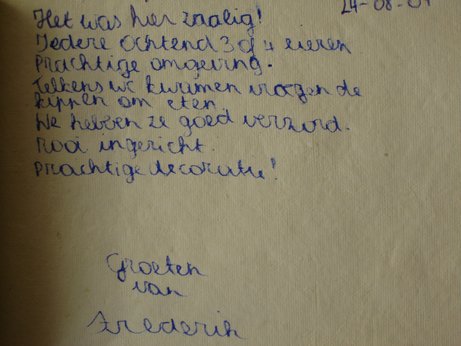 24-08-04
Het was hier zralig!
Iedere ochtend 3 of 4 eieren
prachtige omgeving.
Telkens we kwamen vragen de
kippen om eten.
We hebben ze goed verzord.
Mooi ingericht.
prachtige decoratie!
Groeten
van
Frederik